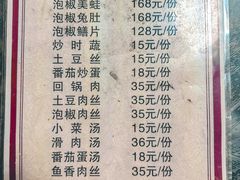 泡椒美蛙 168元/份
泡椒兔肚 168元/份
泡椒鳝片 128元/份
炒时蔬 15元/份
土豆丝 15元/份
番茄炒蛋 18元/份
回锅肉 35元/份
土豆肉丝 35元/份
泡椒肉丝 35元/份
小菜汤 15元/份
滑肉汤 36元/份
番茄蛋汤 18元/份
鱼香肉丝 35元/份